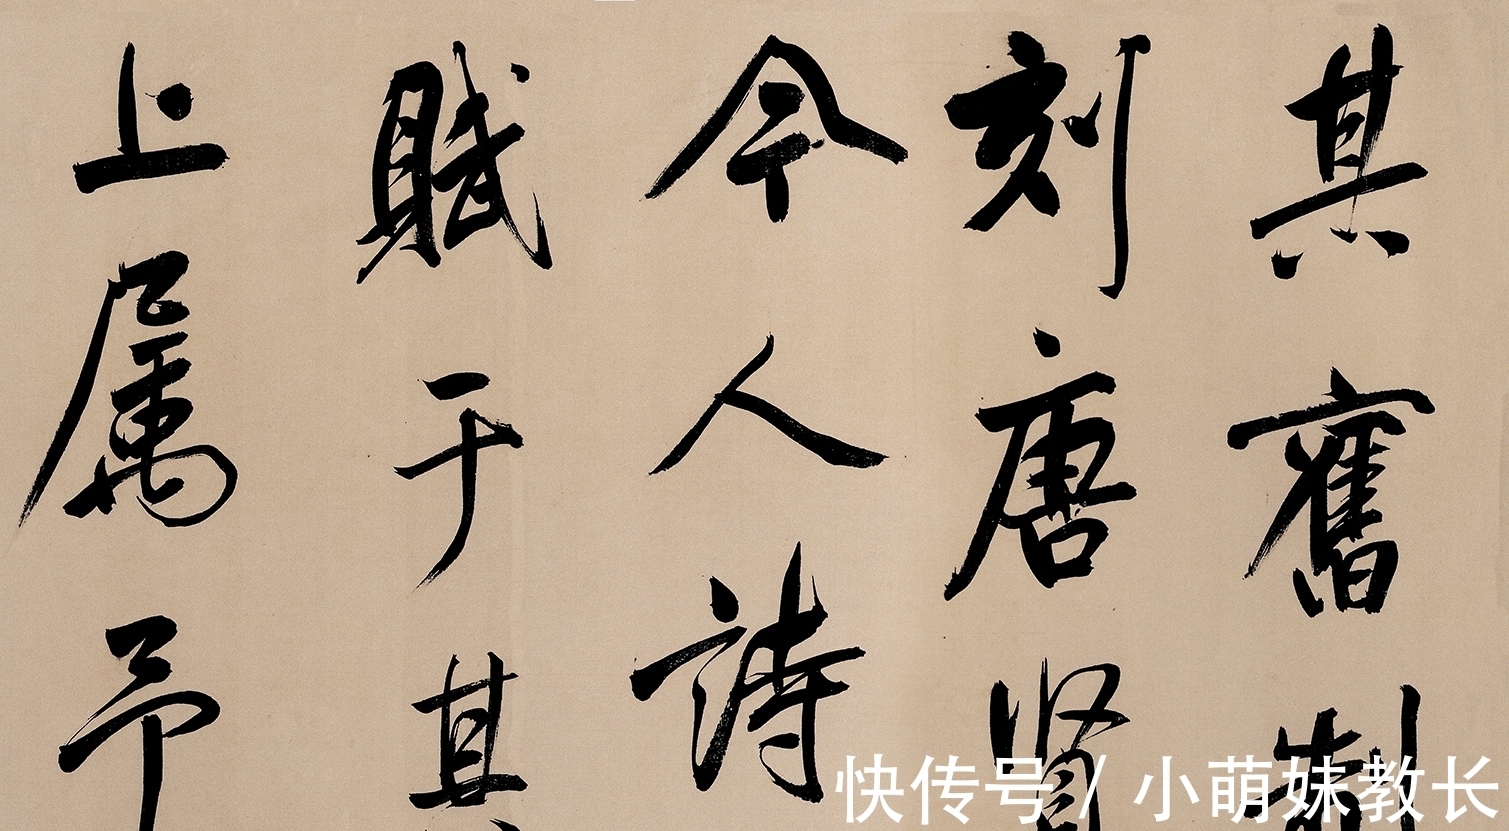 其舊制
刻唐贤
今人詩
賦于其
上属予
快传号 / 小萌妹教长